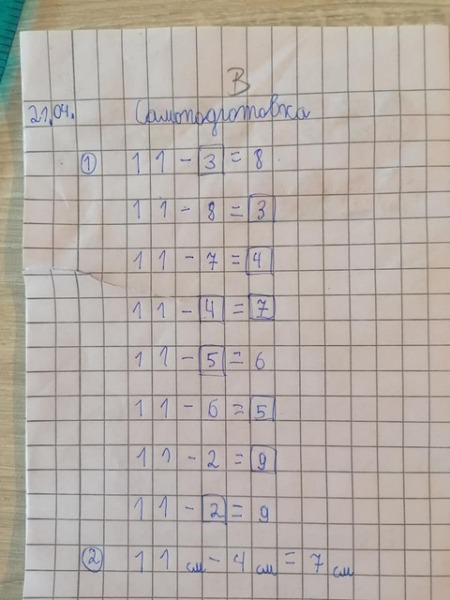 В
21.04. Самоподготовка
① 11 - 3 = 8
11 - 8 = 3
11 - 7 = 4
11 - 4 = 7
11 - 5 = 6
11 - 6 = 5
11 - 2 = 9
11 - 2 = 9
② 11 см - 4 см = 7 см